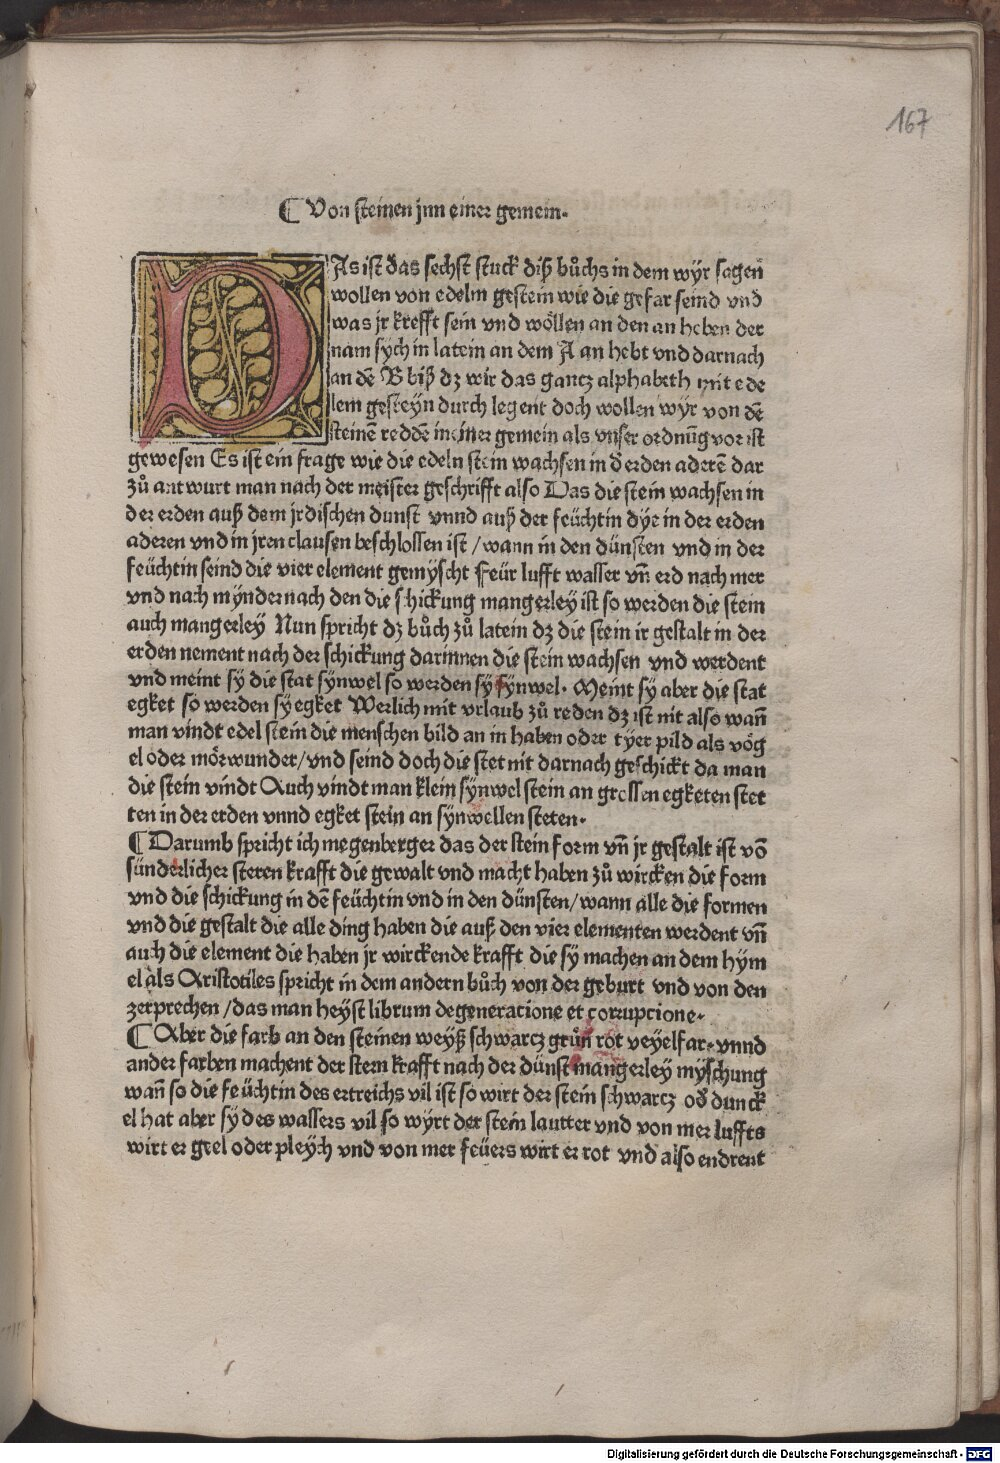 167
⸿ Von steinen jnn einer gemein.
DAs ist das sechst stuck diß bůchs in dem wÿr sagen
wollen von edelm gestein wie die gefar seind vnd
was jr krefft sein vnd wöllen an den an heben der
nam sÿch in latein an dem A an hebt vnd darnach
an dē B biß dz wir das gancz alphabeth mit ede
lem gesteÿn durch legent doch wollen wÿr von dē
steinē reddē in einer gemein als vnser ordnūg vor ist
gewesen Es ist ein frage wie die edeln stein wachsen in d erden aderē dar
zů antwurt man nach der meister geschrifft also Das die stein wachsen in
der erden auß dem jrdischen dunst vnnd auß der feüchtin dÿe in der erden
aderen vnd in jren clausen beschlossen ist / wann in den dünsten vnd in der
feüchtin seind die vier element gemÿscht Feür lufft wasser vn̄ erd nach mer
vnd nach mÿnder nach den die schickung mangerleÿ ist so werden die stein
auch mangerleÿ Nun spricht dz bůch zů latein dz die stein ir gestalt in der
erden nement nach der schickung darinnen die stein wachsen vnd werdent
vnd meint sÿ die stat sÿnwel so werden sÿ sÿnwel. Meint sÿ aber die stat
egket so werden sÿ egket Werlich mit vrlaub zů reden dz ist nit also wan̄
man vindt edel stein die menschen bild an in haben oder tÿer pild als vög
el oder mörwunder / vnd seind doch die stet nit darnach geschickt da man
die stein vindt Auch vindt man klein sÿnwel stein an grossen egketen stet
ten in der erden vnnd egket stein an sÿnwellen steten.
⸿ Darumb spricht ich megenberger das der stein form vn̄ jr gestalt ist vō
sünderlicher steren krafft die gewalt vnd macht haben zů wircken die form
vnd die schickung in dē feüchtin vnd in den dünsten / wann alle die formen
vnd die gestalt die alle ding haben die auß den vier elementen werdent vn̄
auch die element die haben jr wirckende krafft die sÿ machen an dem hÿm
el als Aristotiles spricht in dem andern bůch von der geburt vnd von den
zerprechen / das man heÿst librum de generatione et corrupcione.
⸿ Aber die farb an den steinen weÿß schwarcz grůn rot veÿelfar. vnnd
ander farben machent der stern krafft nach der dünst mangerleÿ mÿschung
wan̄ so die feüchtin des ertreichs vil ist so wirt der stein schwarcz od̄ dunck
el hat aber sÿ des wassers vil so wÿrt der stein lautter vnd von mer luffts
wirt er geel oder pleÿch vnd von mer feüers wirt er rot vnd also endrent
Digitalisierung gefördert durch die Deutsche Forschungsgemeinschaft - DFG